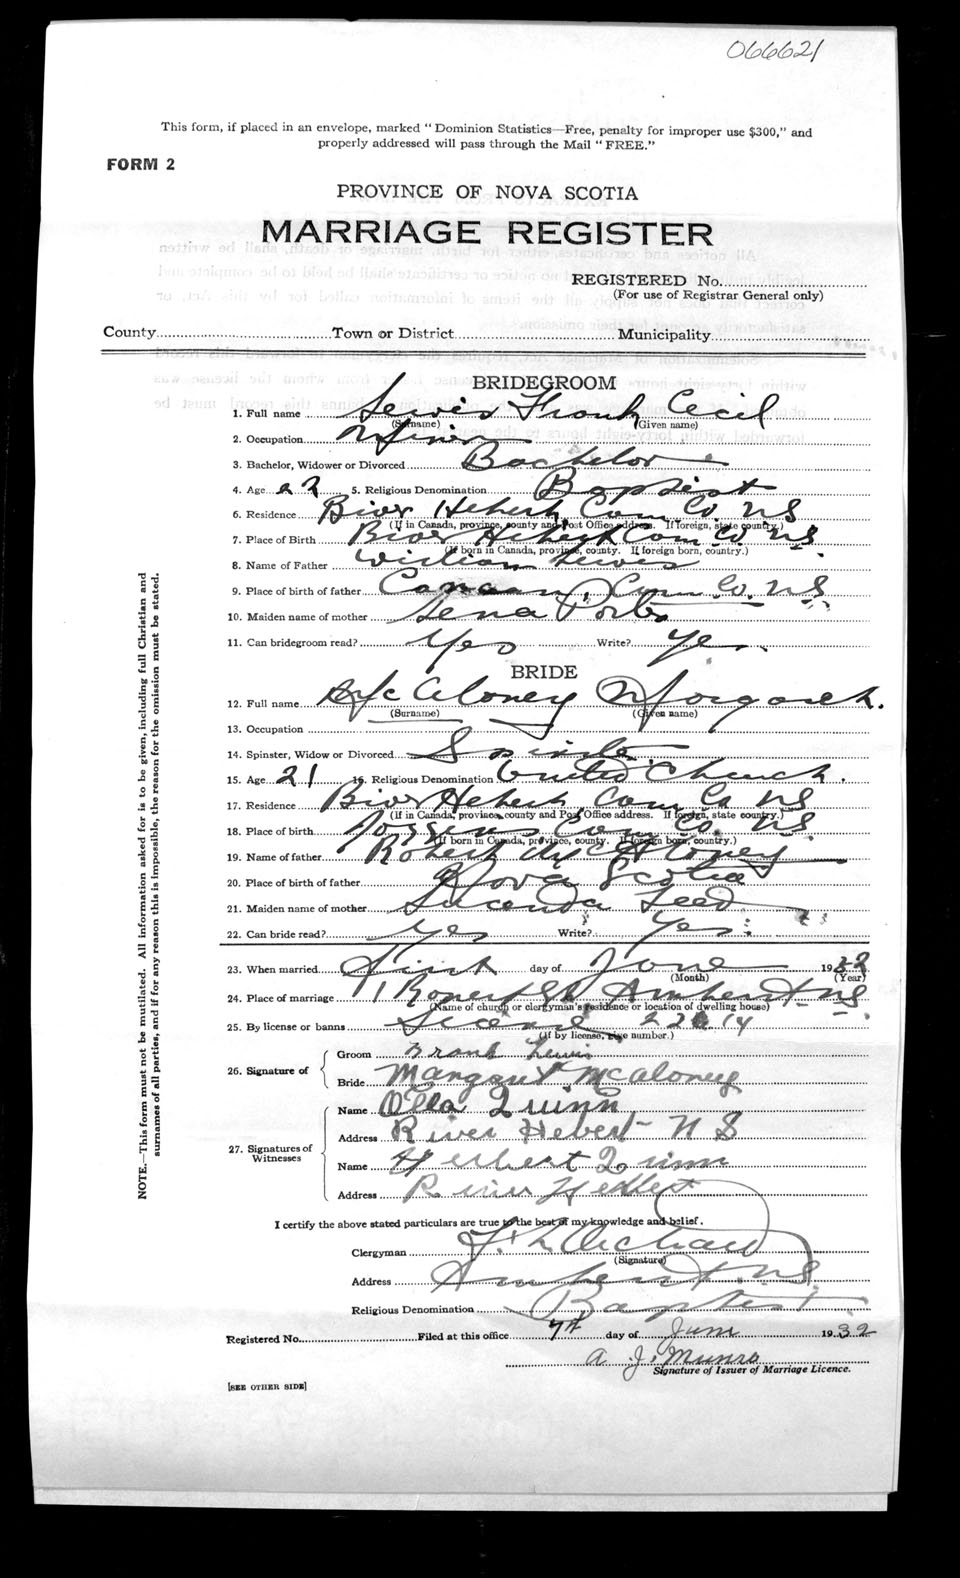 066621
This form, if placed in an envelope, marked "Dominion Statistics—Free, penalty for improper use $300," and
properly addressed will pass through the Mail "FREE."
FORM 2
PROVINCE OF NOVA SCOTIA
MARRIAGE REGISTER
REGISTERED No.
(For use of Registrar General only)
County Town or District Municipality
BRIDEGROOM
1. Full name Lewis Frank Cecil
(Surname) (Given name)
2. Occupation Miner
3. Bachelor, Widower or Divorced Bachelor
4. Age 22 5. Religious Denomination Baptist
6. Residence River Hebert Cum Co. NS
(If in Canada, province, county and Post Office address. If foreign, state country.)
7. Place of Birth River Hebert Cum Co NS
(If born in Canada, province, county. If foreign born, country.)
8. Name of Father William Lewis
9. Place of birth of father Canaan, Cum Co. NS
10. Maiden name of mother Lena
11. Can bridegroom read? Yes Write? Yes
BRIDE
12. Full name McAloney Margaret
(Surname) (Given name)
13. Occupation
14. Spinster, Widow or Divorced Spinster
15. Age 21 16. Religious Denomination United Church.
17. Residence River Hebert, Cum Co NS
(If in Canada, province, county and Post Office address. If foreign, state country.)
18. Place of birth Joggins Cum Co. NS.
(If born in Canada, province, county. If foreign born, country.)
19. Name of father Robert McAloney
20. Place of birth of father Nova Scotia
21. Maiden name of mother Lucinda
22. Can bride read? Yes Write? Yes
23. When married First day of June 1932
(Month) (Year)
24. Place of marriage Amherst NS
(Name of church or clergyman's residence or location of dwelling house)
25. By license or banns License
(If by license, give number.)
26. Signature of
Groom Frank Lewis
Bride Margaret McAloney
27. Signatures of Witnesses
Name Olla Quinn
Address River Hebert N S
Name Herbert Quinn
Address River Hebert
I certify the above stated particulars are true to the best of my knowledge and belief.
Clergyman
(Signature)
Address Amherst NS.
Religious Denomination Baptist
Registered No. Filed at this office 7th day of June 1932
A. J. Munro
Signature of Issuer of Marriage Licence.
[SEE OTHER SIDE]
NOTE.—This form must not be mutilated. All information asked for is to be given, including full Christian and
surnames of all parties, and if for any reason this is impossible, the reason for the omission must be stated.